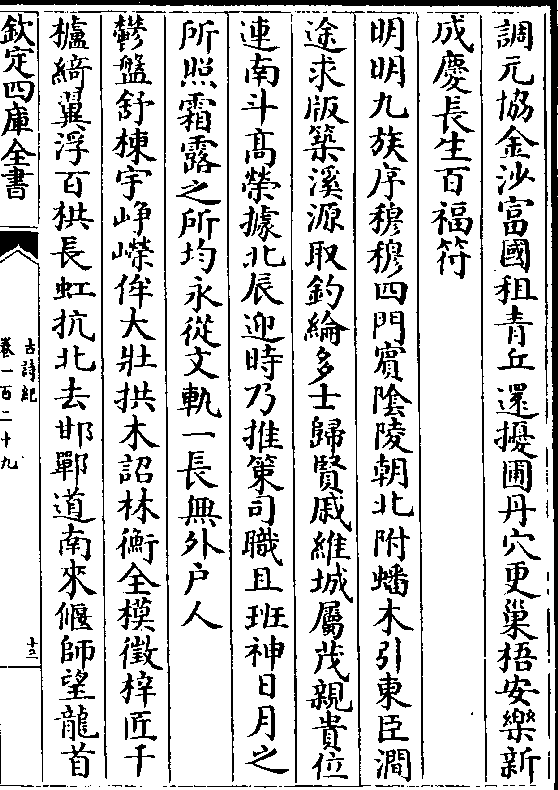 調元協金沙富國租青丘還擾圃丹穴更巢梧安樂新
成慶長生百福符
明明九族序穆穆四門賓陰陵朝北附蟠木引東臣澗
途求版築溪源取釣綸多士歸賢戚維城屬茂親貴位
連南斗高榮據北辰迎時乃推策司職且班神日月之
所照霜露之所均永從文軌一長無外户人
鬱盤舒棟宇崢嶸侔大壯拱木詔林衡全模徵梓匠千
櫨綺翼浮百栱長虹抗北去邯鄲道南來偃師望龍首
欽定四庫全書
古詩紀
卷一百二十九
十三